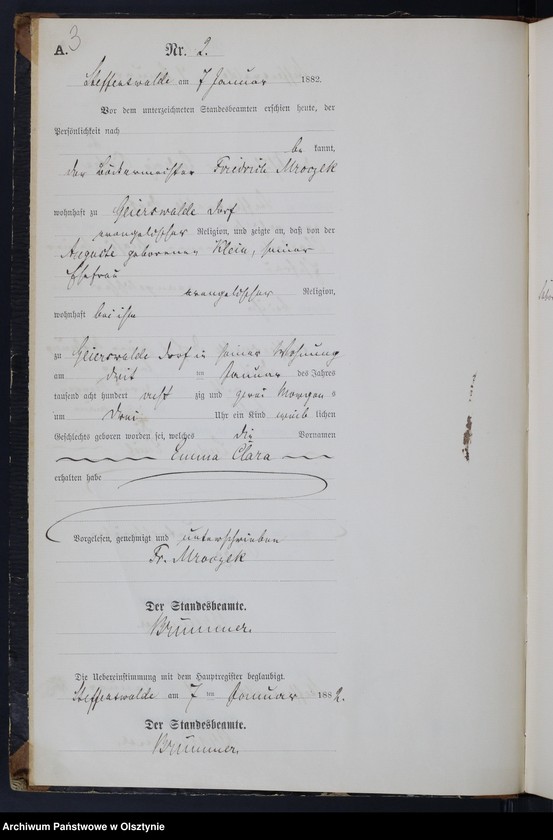 A. 3
Nr. 2.
Steffenswalde am 7 Januar 1882.
Vor dem unterzeichneten Standesbeamten erschien heute, der
Persönlichkeit nach
be kannt,
der Friedrich Mroczek
wohnhaft zu Geierswalde Dorf
evangelischer Religion, und zeigte an, daß von der
Auguste geborenen Klein, seiner
Ehefrau
evangelischer Religion,
wohnhaft bei ihm
zu Geierswalde Dorf in seiner Wohnung
am im Januar des Jahres
tausend acht hundert acht zig und zwei Morgens
um drei Uhr ein Kind weib lichen
Geschlechts geboren worden sei, welches die Vornamen
Emma Clara
erhalten habe
Vorgelesen, genehmigt und unterschrieben
Fr. Mroczek
Der Standesbeamte.
Brümmer.
Die Uebereinstimmung mit dem Hauptregister beglaubigt.
Steffenswalde am 7 ten Januar 1882.
Der Standesbeamte.
Brümmer.
Archiwum Państwowe w Olsztynie